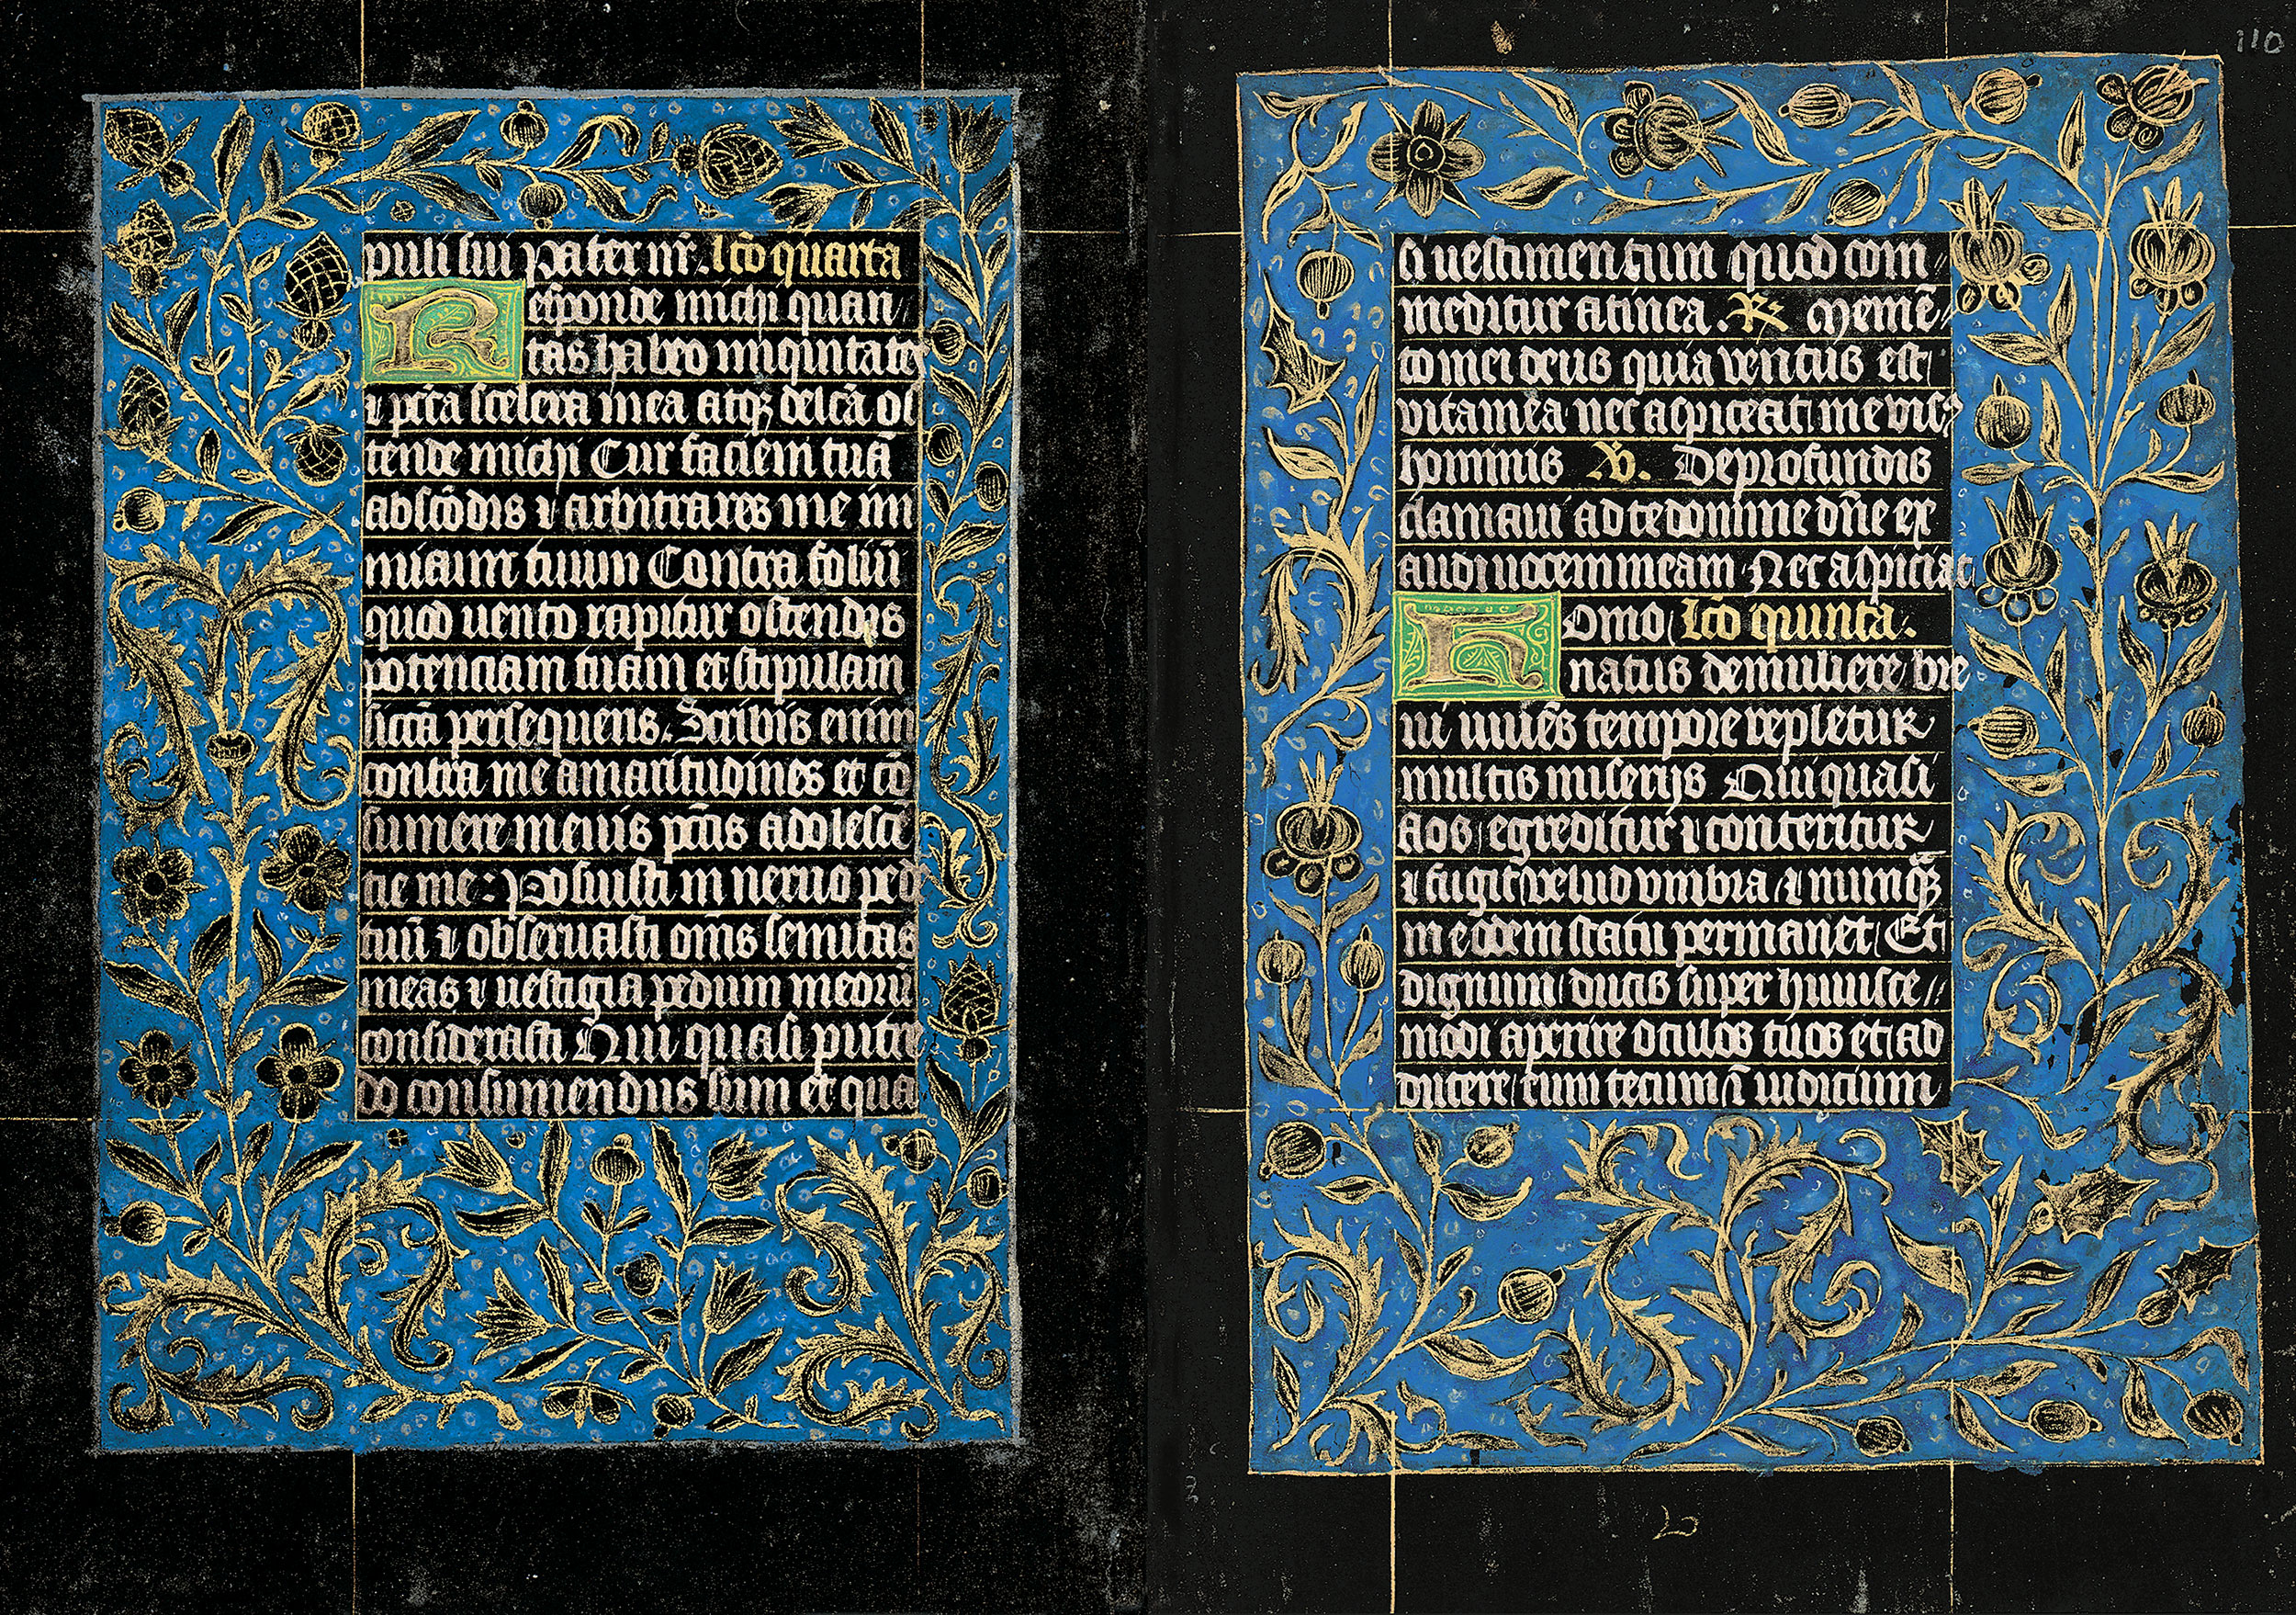 puli sui Pater nr̄. lcō quarta
Responde michi quan
tas habeo iniquitates
⁊ pctā scelera mea atqꝫ delcā os
tende michi Cur faciem tuā
abscōdis ⁊ arbitrares me ini
micum tuum Contra foliū
quod uento rapitur ostendis
potenciam tuam et stipulam
siccā persequens. Scribis enim
contra me amaritudines et cō
sumere me uis pctīs adolescē
cie me: Posuisti in neruo pede
tuū ⁊ obseruasti om̄s semitas
meas ⁊ uestigia pedum meorū
considerasti Qui quasi putre
do consumendus sum et qua
110
si uestimentum quod com
meditur a tinea. R Memē
to mei deus quia ventus est
vita mea nec aspiceat me vis
hominis V. De profundis
clamaui ad te domine dn̄e ex
audi uocem meam Nec aspiciat
Homo lcō quinta.
natus de muliere bre
ui uiuēs tempore repletur
multis miserijs Qui quasi
flos egreditur ⁊ conteritur
⁊ fugit velud vmbra ⁊ numqᷓꝫ
in eodem statu permanet Et
dignum ducis super huiusce
modi aperire oculos tuos et ad
ducere eum tecum ī iudicium